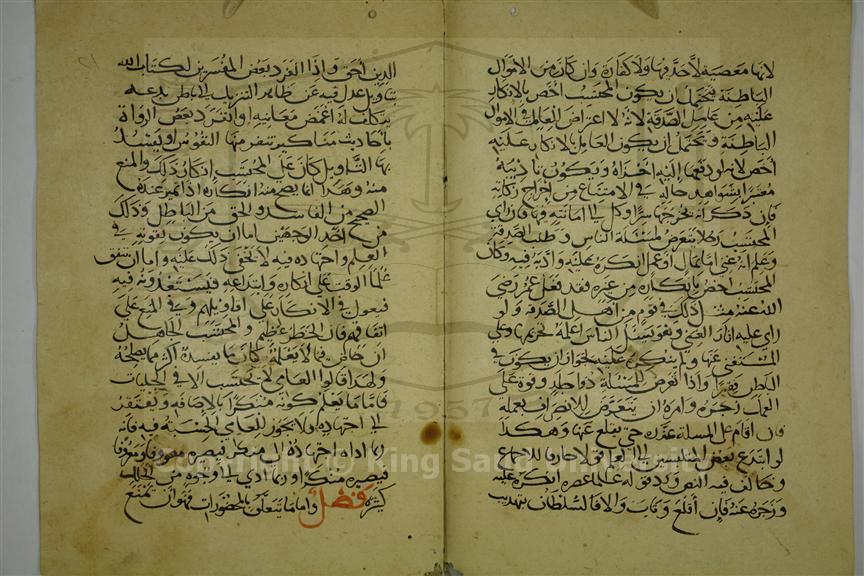 لانها معصية لا حد فيها ولا كفارة وان كان من الاموال
الباطنة فيحتمل ان يكون المحتسب اخص بالانكار
عليه من عامل الصدقة لانه لا اعتراض للعامل في الاموال
الباطنة ويحتمل ان يكون العامل بالانكار عليه
اخص لانه لو دفعها اليه اجزاه ويكون تاديبه
معتبرا بشواهد حاله في الامتناع من اخراج زكاته
فان ذكر انه يخرجها سرا وكل الى امانته وان راى
المحتسب رجلا يتعرض لمسئلة الناس وطلب الصدقة
وعلم انه غني اما بمال او عمل انكره عليه وادبه فيه وكان
المحتسب اخص بانكاره من غيره فقد فعل عمر رضي
الله عنه مثل ذلك في قوم من اهل الصدقة ولو
راى عليه اثار الغنى وهو يسأل الناس اعلمه تحريمها على
المستغني عنها ولم ينكره عليه لجواز ان يكون في
الباطن فقيرا واذا تعرض للمسئلة ذو جلد وقوة على
العمل زجره وامره ان يتعرض للاحتراف بعمله
فان اقام على المسئلة عزره حتى يقلع عنها وهكذا
لو ابتدع بعض المنتسبين الى العلم قولا خارقا للاجماع
وخالف فيه النص ورد قوله علماء عصره انكره عليه
وزجره عنه فان اقلع وتاب والا فالسلطان بتهذيب
الدين احق واذا انفرد بعض المفسرين لكتاب الله
بتاويل عدل فيه عن ظاهر التنزيل الى باطن بدعة
يتكلف له اغمض معانيه او انفرد بعض الرواة
باحاديث مناكير تنفر منها النفوس او يفسد
بها التاويل كان على المحتسب انكار ذلك والمنع
منه وهذا انما يصح منه انكاره اذا تميز عنده
الصحيح من الفاسد والحق من الباطل وذلك
من احد الوجهين اما ان يكون بقوته في
العلم واجتهاده فيه لا يخفى ذلك عليه واما ان يتفق
علماء الوقت على انكاره وابتداعه فيستعدونه فيه
فيعول في الانكار على اقاويلهم وفي المنع على
اتفاقهم فان الخطر عظيم والمحتسب الجاهل
ان خاض فيما لا يعلمه كان ما يفسده اكثر مما يصلحه
ولهذا قالوا العامي لا يحتسب الا في الجليات
فاما ما يعلم كونه منكرا بالاضافة ويفتقر
الى اجتهاد فلا يجوز للعامي الحسبة فيه فانه
ربما اداه اجتهاده الى منكر فيصيره معروفا او معروفا
فيصيره منكرا وربما ادى الى وجوه من الخلل
كثيرة فصل واما ما يتعلق بالمحظورات فهو ان يمنع
Copyright © King Saud University
1957